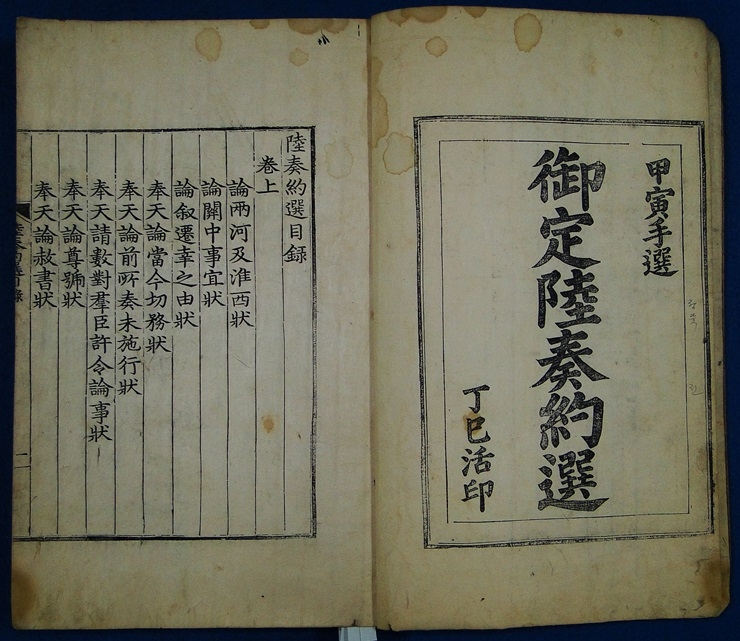 甲寅手選
御定陸奏約選
丁巳活印
陸奏約選目錄
卷上
論兩河及淮西狀
論關中事宜狀
論叙遷幸之由狀
奉天論當今切務狀
奉天論前所奏未施行狀
奉天請數對羣臣許令論事狀
奉天論尊號狀
奉天論赦書狀
二